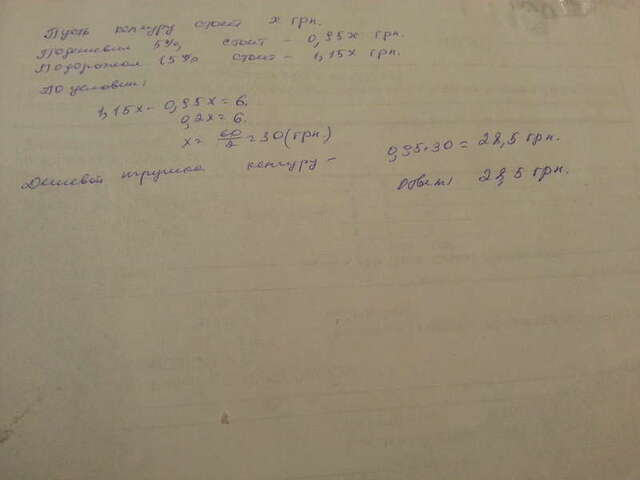 Пусть кенгуру стоит x грн.
Подешевел 5%, стоит - 0,95x грн.
Подорожал 15% стоит - 1,15x грн.
По условию:
1,15x - 0,95x = 6.
0,2x = 6.
x = 60/2 = 30 (грн)
Дешевой игрушка кенгуру - 0,95·30 = 28,5 грн.
Ответ: 28,5 грн.